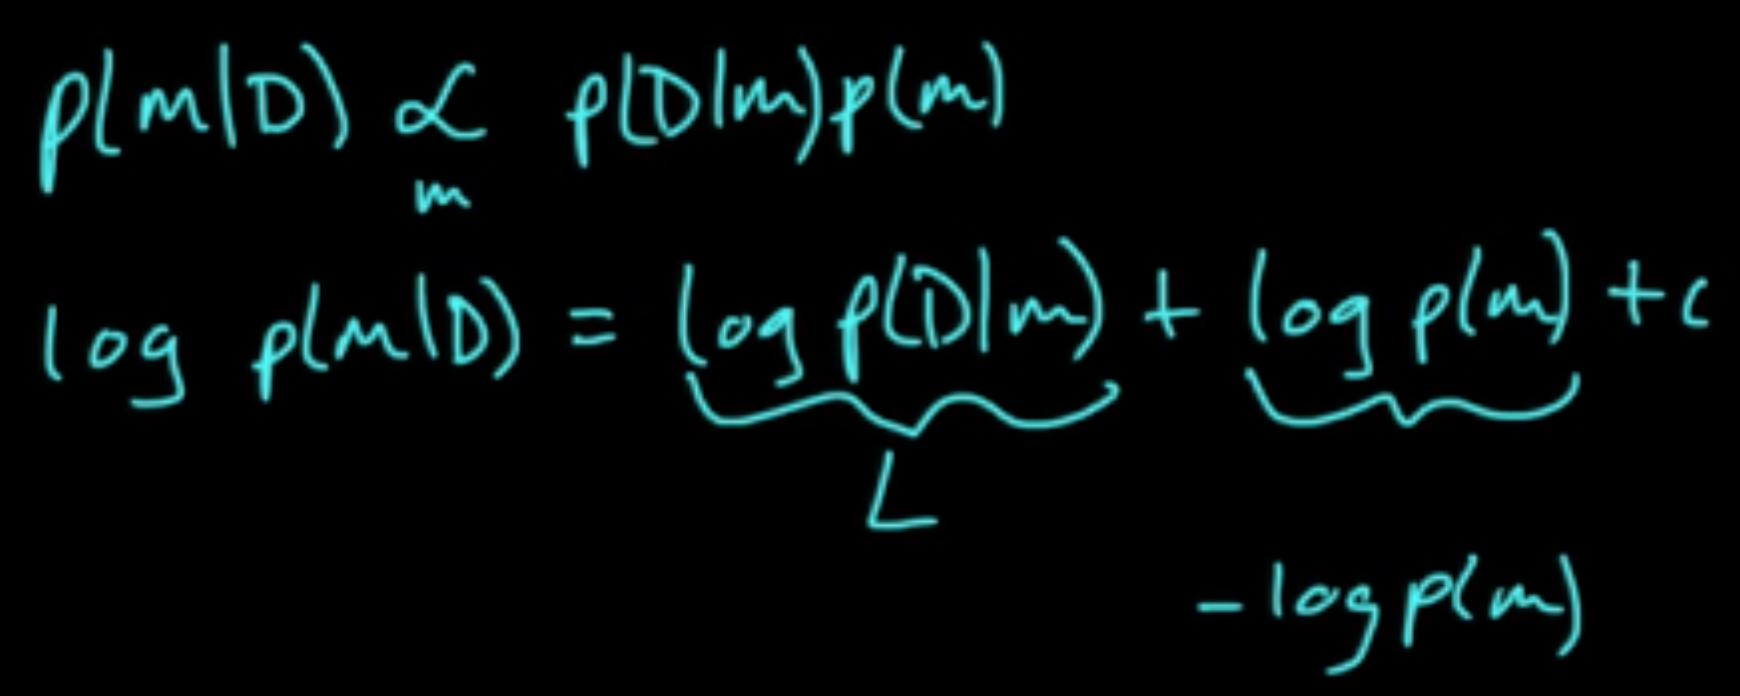 p(m|D) ∝ p(D|m)p(m)
m
log p(m|D) = log p(D|m) + log p(m) + c
L
- log p(m)